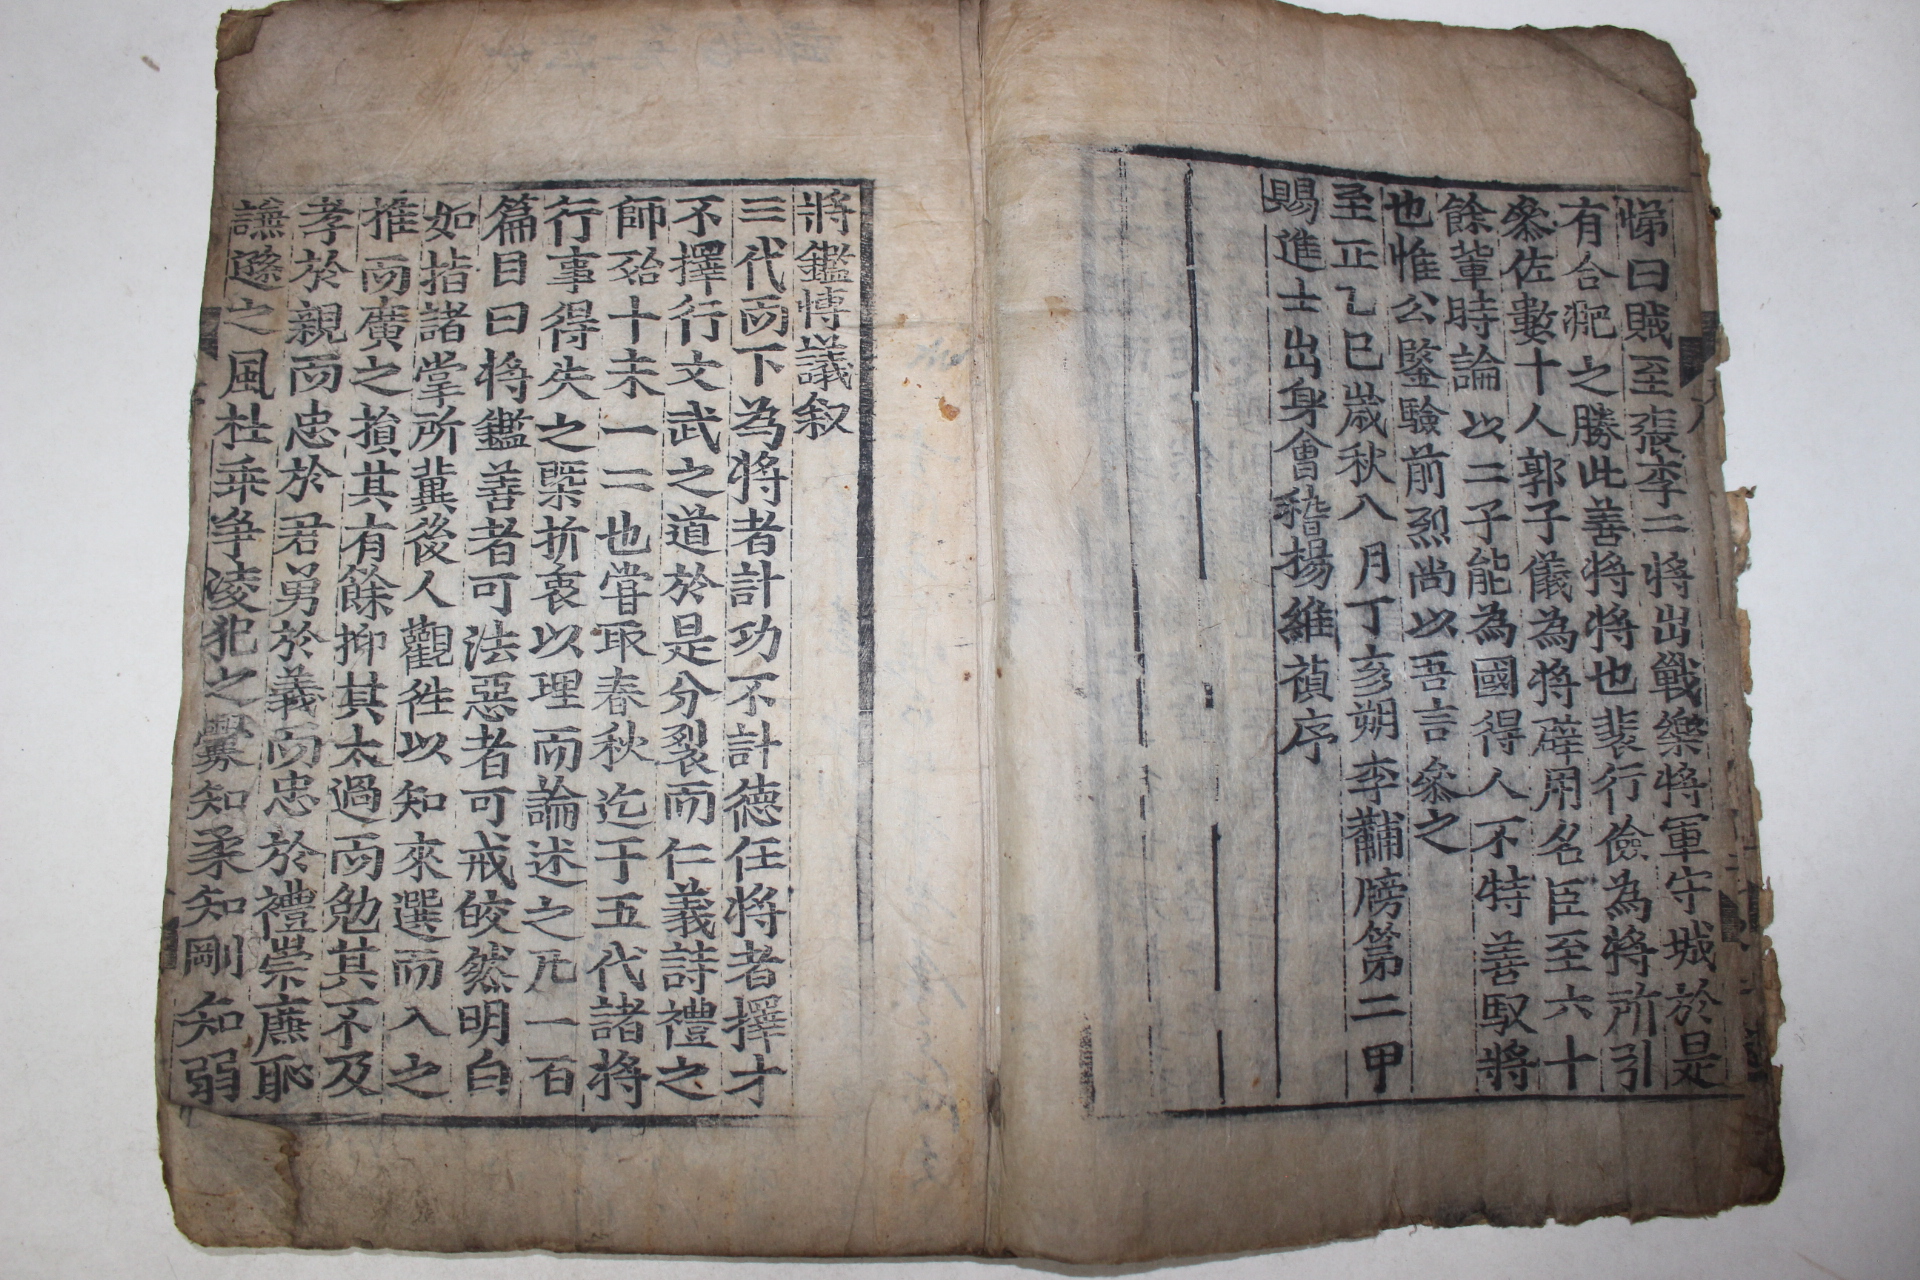 悌曰賊至張李二將出戰樂將軍守城於是
有合淝之勝此善將將也裴行儉為將所引
叅佐數十人郭子儀為將辟用名臣至六十
餘軰時論以二子能為國得人不特善馭將
也惟公鑒驗前烈尚以吾言叅之
至正乙巳歲秋八月丁亥朔李黼牓第二甲
賜進士出身會稽楊維禎序
將鑑博議叙
三代而下為將者計功不計德任將者擇才
不擇行文武之道於是分裂而仁義詩禮之
師殆十未一二也嘗取春秋迄于五代諸將
行事得失之槩折衷以理而論述之凡一百
篇目曰將鑑善者可法惡者可戒皎然明白
如指諸掌所冀後人觀徃以知來選而入之
推而廣之損其有餘抑其太過而勉其不及
孝於親而忠於君勇於義而忠於禮崇廉恥
謙遜之風杜乘争凌犯之釁知柔知剛知弱